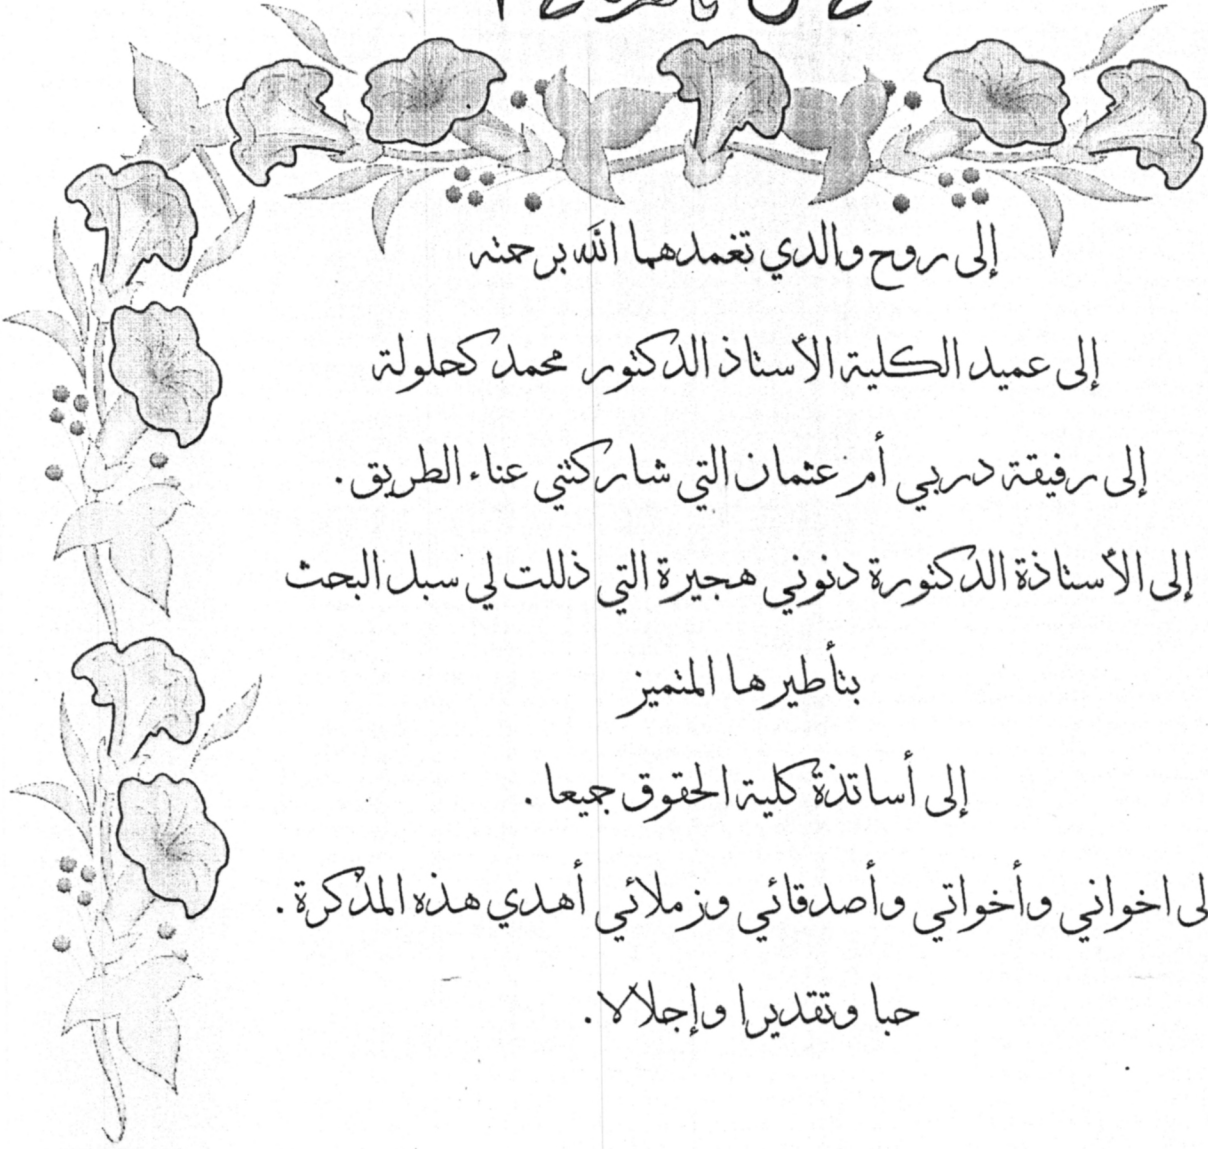 إلى روح والدي تغمدهما الله برحمته
إلى عميد الكلية الأستاذ الدكتور محمد كحلولة
إلى رفيقة دربي أم عثمان التي شاركتني عناء الطريق.
إلى الأستاذة الدكتورة دنوني هجيرة التي ذللت لي سبل البحث
بتأطيرها المتميز
إلى أساتذة كلية الحقوق جميعا .
لى اخواني وأخواتي وأصدقائي وزملائي أهدي هذه المذكرة .
حبا وتقديرا وإجلالا .